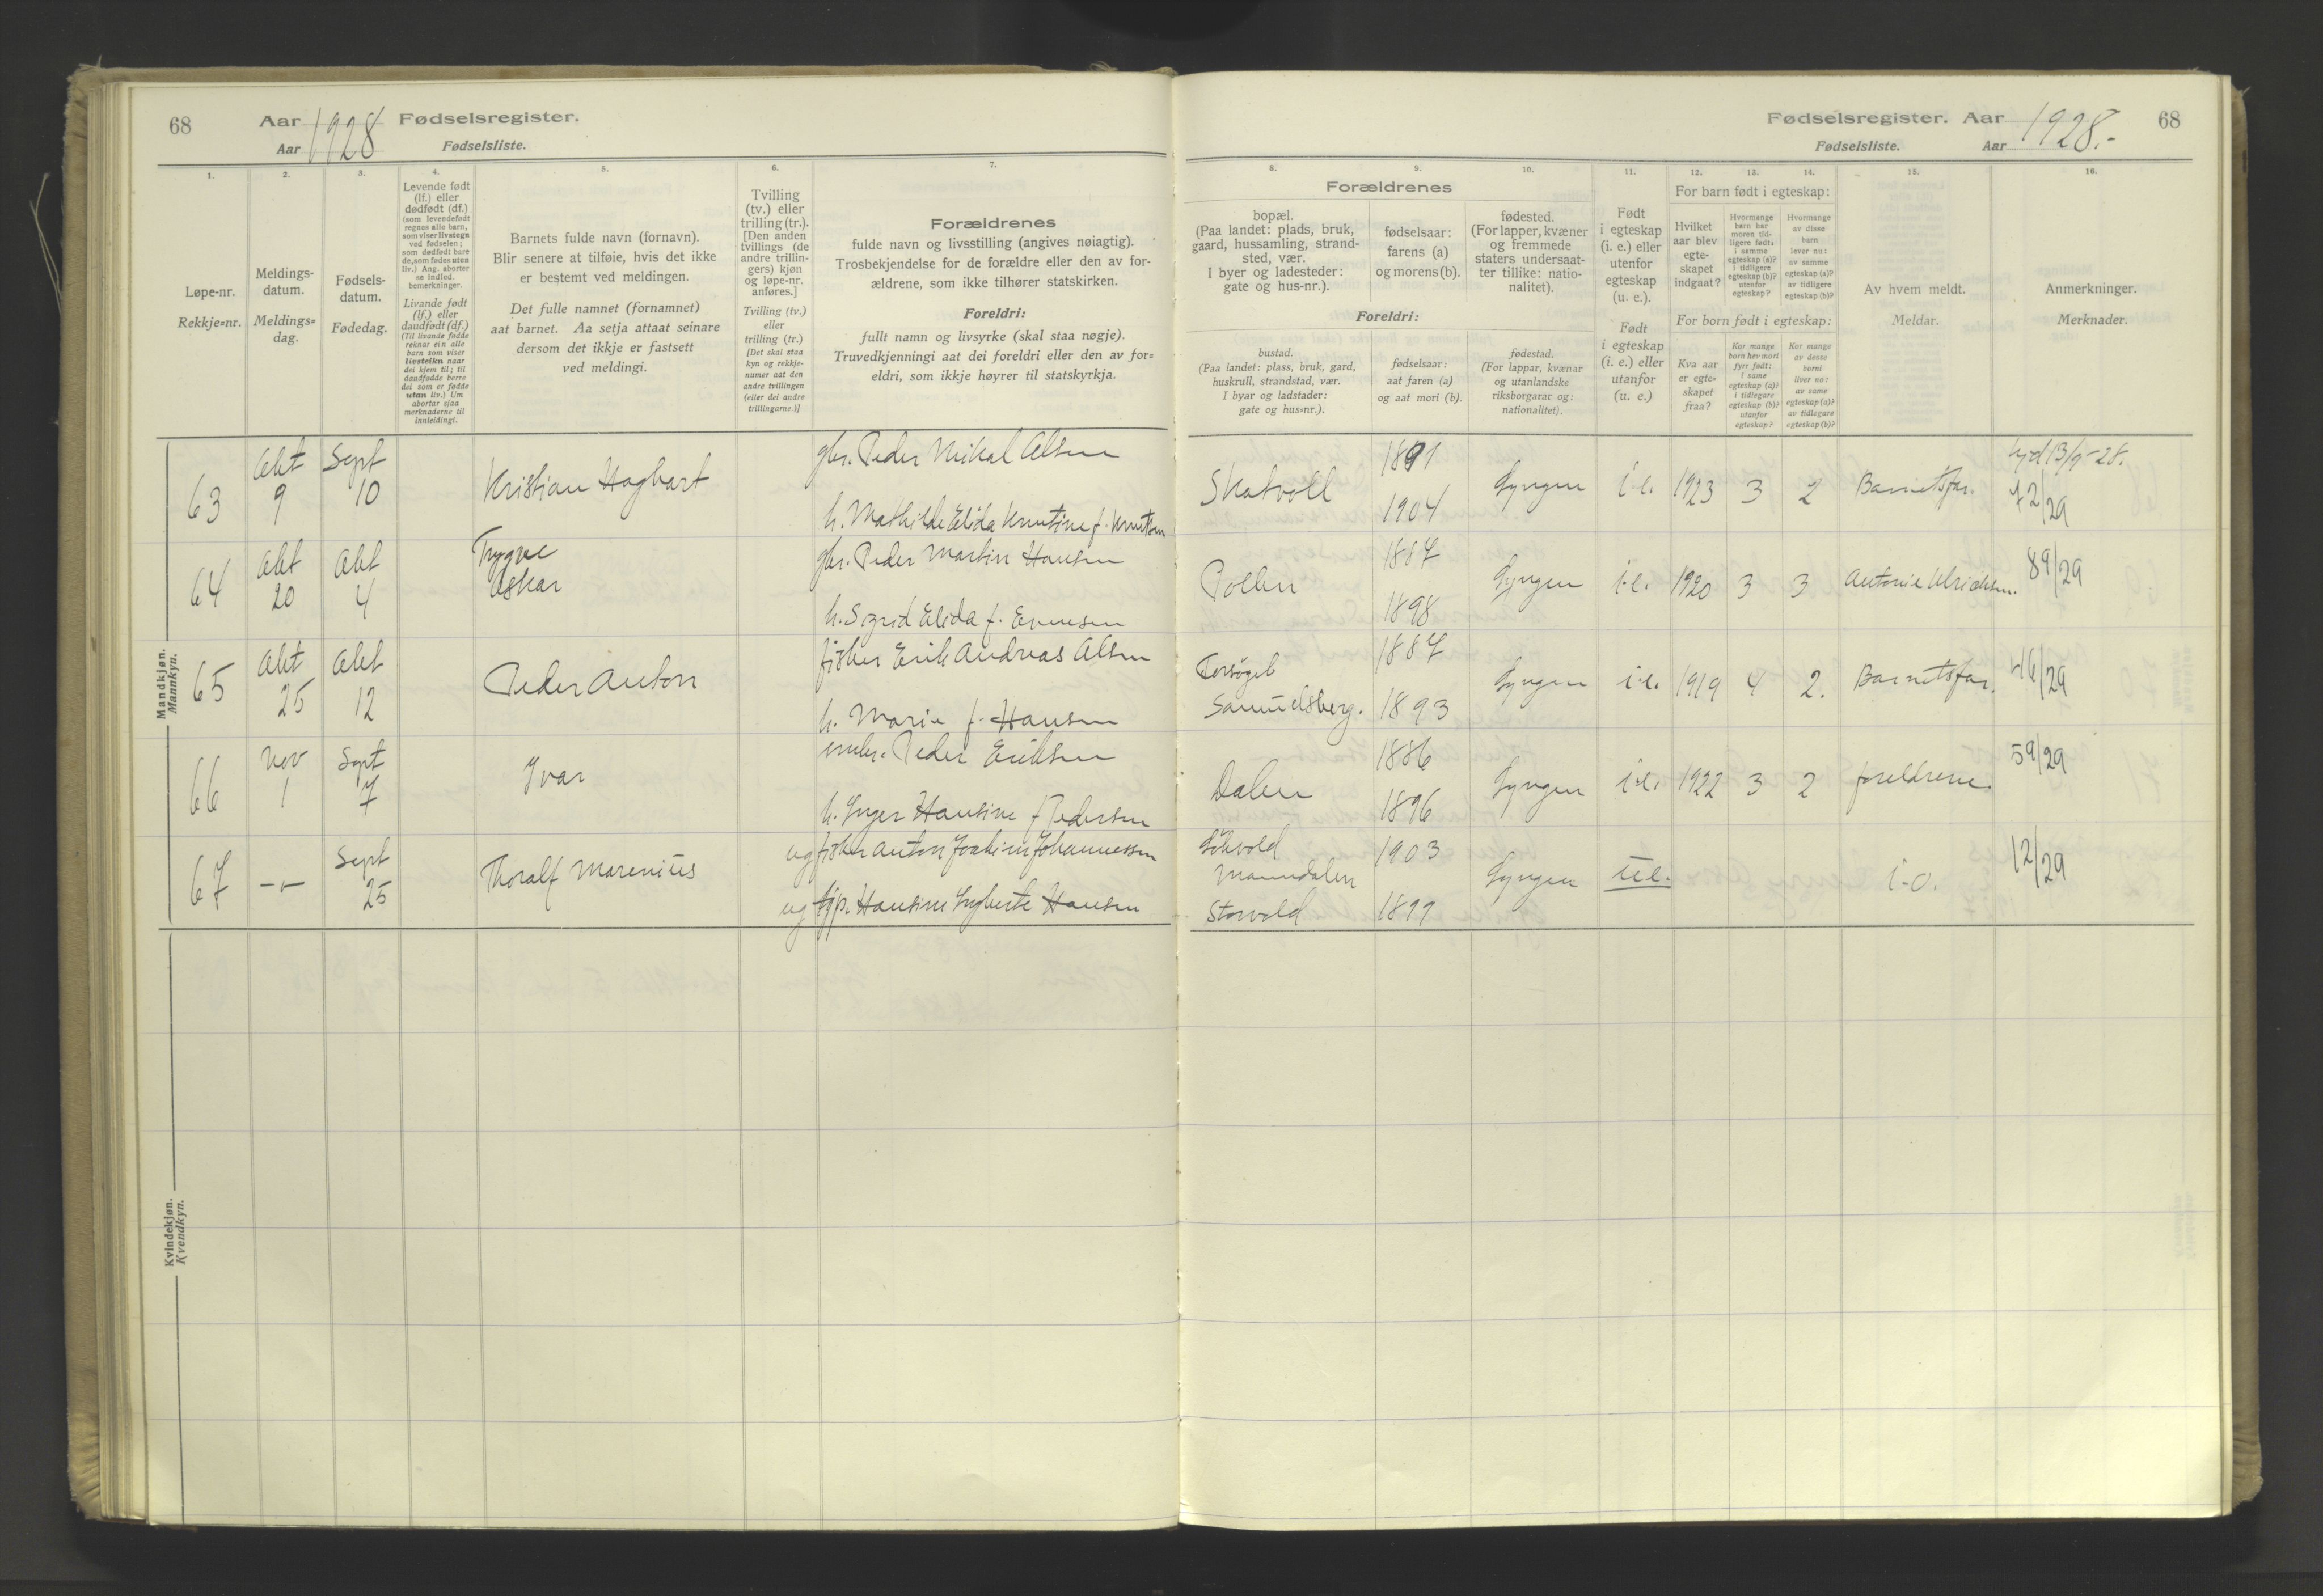 68
Aar 1928 Fødselsregister.
Aar
Fødselsliste.
1.
2.
3.
4.
5.
6.
7.
Løpe-nr.
Rekkje=nr.
Meldings-
datum.
Meldings=
dag.
Fødsels-
datum.
Fødedag.
Levende født
(lf.) eller
dødfødt (df.)
(som levendefødt
regnes alle barn,
som viser livstegn
ved fødselen;
som dødfødt bare
de, som fødes uten
liv.) Ang. aborter
se indled.
bemerkninger.
Livande født
(lf.) eller
daudfødt (df.)
(Til livande fødde
reknar ein alle
barn som viser
livsteikn naar
dei kjem til; til
daudfødde berre
dei som er fødde
utan liv.) Um
abortar sjaa
merknaderne til
innleidingi.
Barnets fulde navn (fornavn).
Blir senere at tilføie, hvis det ikke
er bestemt ved meldingen.
Det fulle namnet (fornamnet)
aat barnet. Aa setja attaat seinare
dersom det ikkje er fastsett
ved meldingi.
Tvilling
(tv.) eller
trilling (tr.).
[Den anden
tvillings (de
andre trillin-
gers) kjøn
og løpe-nr.
anføres.]
Tvilling (tv.)
eller
trilling (tr.)
[Det skal staa
kyn og rekkje-
numer aat den
andre tvillingen
(eller dei andre
trillingarne.)]
Forældrenes
fulde navn og livsstilling (angives nøiagtig).
Trosbekjendelse for de forældre eller den av for-
ældrene, som ikke tilhører statskirken.
Foreldri:
fullt namn og livsyrke (skal staa nøgje).
Truvedkjenningi aat dei foreldri eller den av for=
eldri, som ikkje høyrer til statskyrkja.
Mandkjøn.
Mannkyn.
63
Okt
9
Sept
10
Kristian Hagbart
gbr. Peder Mikal Olsen
h. Mathilde Elida Knutine f. Knutsen
64
Okt
20
Okt
4
Trygve
Oskar
gbr. Peder Martin Hansen
h. Sigrid Elida f. Evensen
65
Okt
25
Okt
12
Peder Anton
fisker Erik Andreas Olsen
h. Marie f. Hansen
66
Nov
1
Sept
7
Ivar
Peder Eriksen
h. Inger Hansine f Pedersen
67
-"-
Sept
25
Thoralf Marenius
ug fisker Anton Joakim Johannessen
ug tjp. Hansine Ingberte Hansen
Kvindekjøn.
Kvendkyn.
Fødselsregister. Aar 1928.-
68
Fødselsliste.
Aar
8.
9.
10.
11.
12.
13.
14.
15.
16.
Forældrenes
bopæl.
(Paa landet: plads, bruk,
gaard, hussamling, strand-
sted, vær.
I byer og ladesteder:
gate og hus-nr.).
fødselsaar:
farens (a)
og morens (b).
fødested.
(For lapper, kvæner
og fremmede
staters undersaat-
ter tillike: natio-
nalitet).
Foreldri:
bustad.
(Paa landet: plass, bruk, gard,
huskrull, strandstad, vær.
I byar og ladstader:
gate og hus=nr.).
fødselsaar:
aat faren (a)
og aat mori (b).
fødestad.
(For lappar, kvænar
og utanlandske
riksborgarar og:
nationalitet).
Født
i egteskap
(i. e.) eller
utenfor
egteskap
(u. e.).
Født
i egteskap
(i. e.) eller
utanfor
(u. e.)
For barn født i egteskap:
Hvilket
aar blev
egte-
skapet
indgaat?
Hvormange
barn har
moren tid-
ligere født:
i samme
egteskap (a)?
i tidligere
egteskap (b)?
utenfor
egteskap?
Hvormange
av disse
barn
lever nu:
av samme
egteskap (a)?
av tidligere
egteskap (b)?
For born født i egteskap:
Kva aar
er egte=
skapet
fraa?
Kor mange
born hev mori
fyrr født:
i same
egteskap (a)?
i tidlegare
egteskap (b)?
utanfor
egteskap?
Kor mange
av desse
borni
liver no:
av same
egteskap (a)?
av tidlegare
egteskap (b)?
Av hvem meldt.
Meldar.
Anmerkninger.
Merknader.
Skatvoll
1891
1904
Lyngen
i.e.
1923
3
2
Barnetsfar.
hjd 13/9-28.
72/29
Pollen
1887
1898
Lyngen
i.e.
1920
3
3
Antonie Ulriksen.
89/29
Samuelsberg.
1887
1893
Lyngen
i.e.
1919
4
2.
Barnetsfar.
46/29
Dalen
1886
1896
Lyngen
i.e.
1922
3
2
foreldrene.
59/29
Løkvold
Manndalen
Storvold
1903
1899
Lyngen
u.e.
12/29